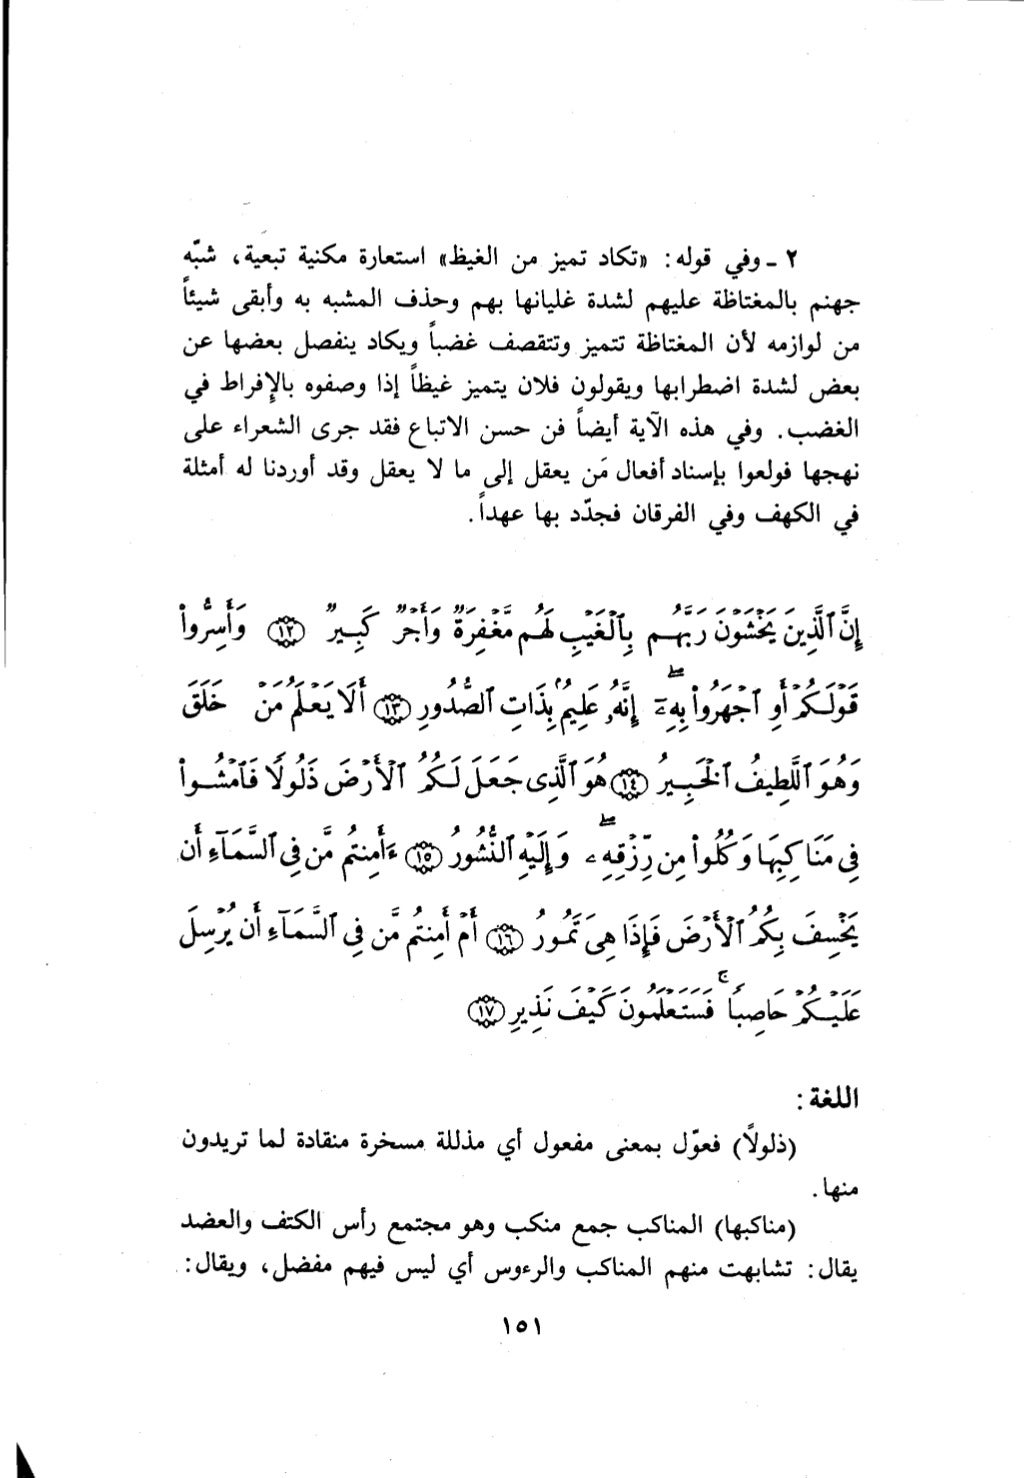 ٢ - وفي قوله: «تكاد تميز من الغيظ» استعارة مكنية تبعية، شبّه
جهنم بالمغتاظة عليهم لشدة غليانها بهم وحذف المشبه به وأبقى شيئاً
من لوازمه لأن المغتاظة تتميز وتتقصف غضباً ويكاد ينفصل بعضها عن
بعض لشدة اضطرابها ويقولون فلان يتميز غيظاً إذا وصفوه بالإفراط في
الغضب. وفي هذه الآية أيضاً فن حسن الاتباع فقد جرى الشعراء على
نهجها فولعوا بإسناد أفعال مَن يعقل إلى ما لا يعقل وقد أوردنا له أمثلة
في الكهف وفي الفرقان فجدّد بها عهداً.
إِنَّ ٱلَّذِينَ يَخْشَوْنَ رَبَّهُم بِٱلْغَيْبِ لَهُم مَّغْفِرَةٌ وَأَجْرٌ كَبِيرٌ ﴿١٢﴾ وَأَسِرُّوا۟
قَوْلَكُمْ أَوِ ٱجْهَرُوا۟ بِهِۦٓ ۖ إِنَّهُۥ عَلِيمٌۢ بِذَاتِ ٱلصُّدُورِ ﴿١٣﴾ أَلَا يَعْلَمُ مَنْ خَلَقَ
وَهُوَ ٱللَّطِيفُ ٱلْخَبِيرُ ﴿١٤﴾ هُوَ ٱلَّذِى جَعَلَ لَكُمُ ٱلْأَرْضَ ذَلُولًا فَٱمْشُوا۟
فِى مَنَاكِبِهَا وَكُلُوا۟ مِن رِّزْقِهِۦ ۖ وَإِلَيْهِ ٱلنُّشُورُ ﴿١٥﴾ ءَأَمِنتُم مَّن فِى ٱلسَّمَآءِ أَن
يَخْسِفَ بِكُمُ ٱلْأَرْضَ فَإِذَا هِىَ تَمُورُ ﴿١٦﴾ أَمْ أَمِنتُم مَّن فِى ٱلسَّمَآءِ أَن يُرْسِلَ
عَلَيْكُمْ حَاصِبًا ۖ فَسَتَعْلَمُونَ كَيْفَ نَذِيرِ ﴿١٧﴾
اللغة:
(ذلولاً) فعوّل بمعنى مفعول أي مذللة مسخرة منقادة لما تريدون
منها.
(مناكبها) المناكب جمع منكب وهو مجتمع رأس الكتف والعضد
يقال: تشابهت منهم المناكب والرءوس أي ليس فيهم مفضل، ويقال:
١٥١